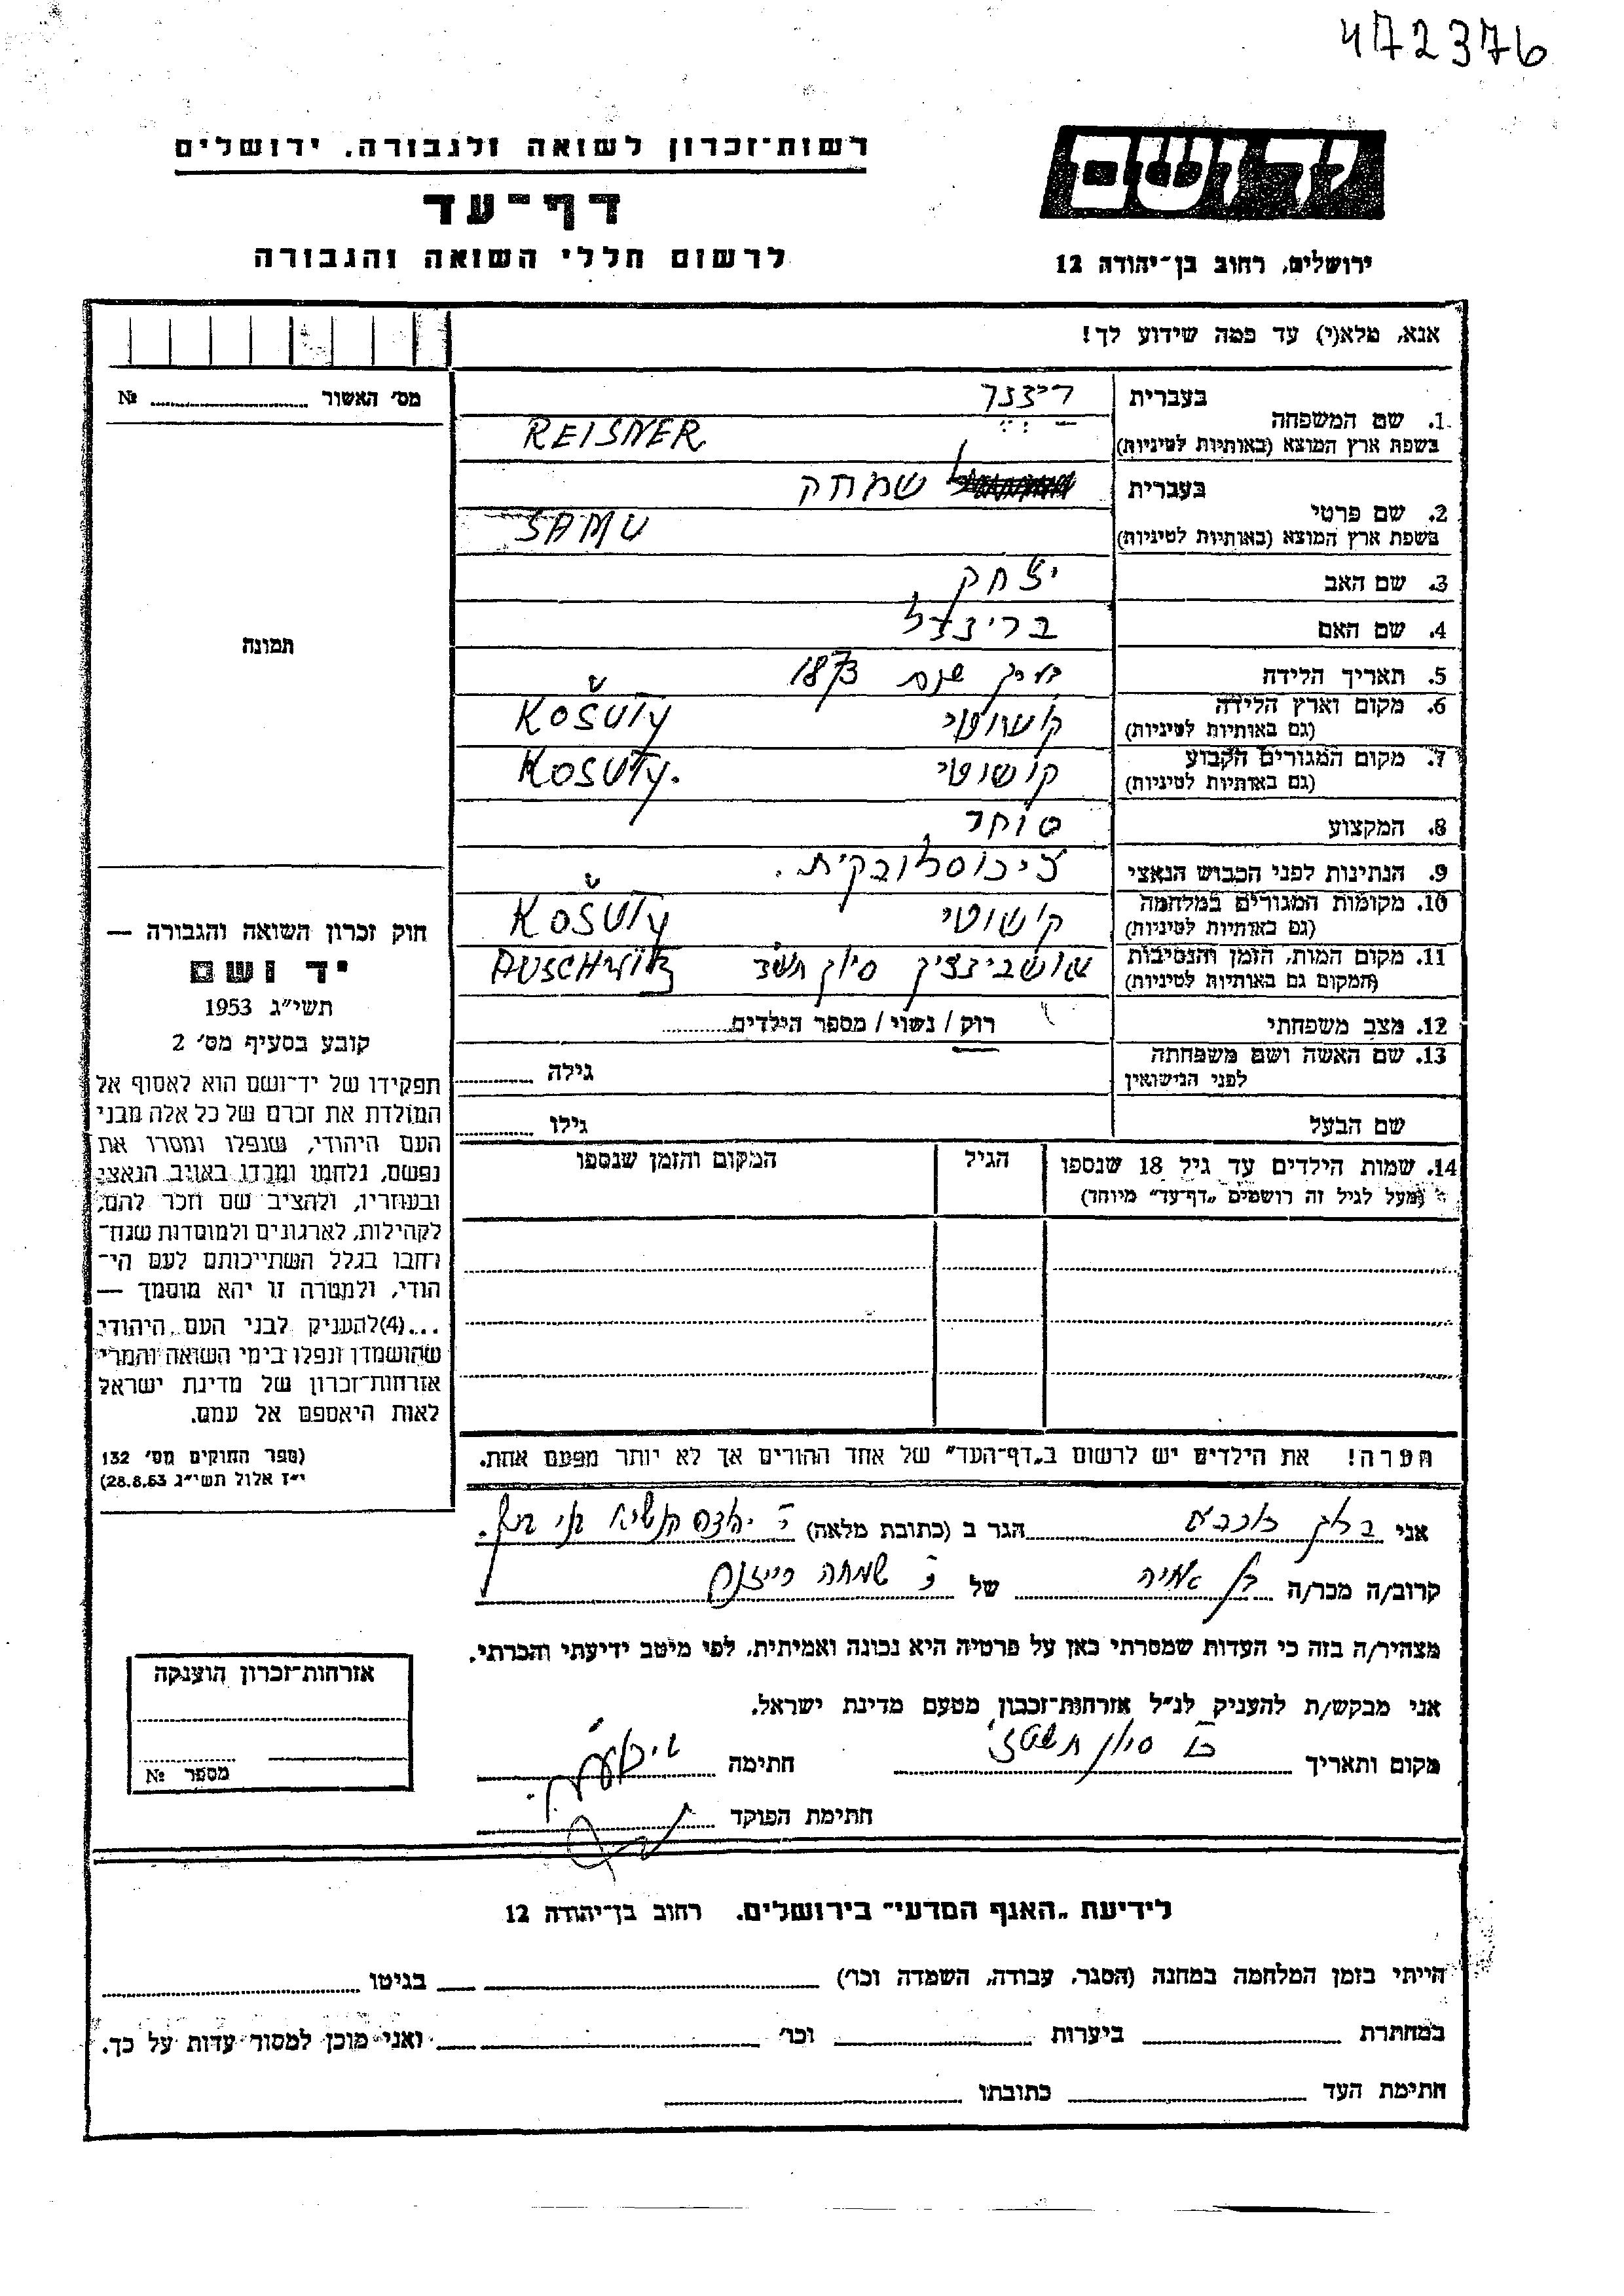 472376
ידושם
רשות־זכרון לשואה ולגבורה, ירושלים
דף־עד
לרשום חללי השואה והגבורה
ירושלים, רחוב בן־יהודה 12
אנא, מלא(י) עד כמה שידוע לך!
מס׳ האשור № 
בעברית ריזנר
1. שם המשפחה
בשפת ארץ המוצא (באותיות לטיניות) REISNER
בעברית
2. שם פרטי
בשפת ארץ המוצא (באותיות לטיניות) SAMU
3. שם האב יצחק
4. שם האם
5. תאריך הלידה שנת 1873
6. מקום וארץ הלידה קושוטי KOSUTY
(גם באותיות לטיניות)
7. מקום המגורים הקבוע קושוטי KOSUTY.
(גם באותיות לטיניות)
8. המקצוע סוחר
9. הנתינות לפני הכבוש הנאצי
10. מקומות המגורים במלחמה קושוטי KOSUTY
(גם באותיות לטיניות)
11. מקום המות, הזמן והנסיבות סיון תש״ד AUSCHWITZ
(המקום גם באותיות לטיניות)
12. מצב משפחתי רוק / נשוי / מספר הילדים
13. שם האשה ושם משפחתה
לפני הנישואין גילה
שם הבעל גילו
14. שמות הילדים עד גיל 18 שנספו הגיל המקום והזמן שנספו
(מעל לגיל זה רושמים „דף־עד״ מיוחד)
הערה! את הילדים יש לרשום ב„דף־העד״ של אחד ההורים אך לא יותר מפעם אחת.
תמונה
חוק זכרון השואה והגבורה —
יד ושם
תשי״ג 1953
קובע בסעיף מס׳ 2
תפקידו של יד־ושם הוא לאסוף אל
המולדת את זכרם של כל אלה מבני
העם היהודי, שנפלו ומסרו את
נפשם, נלחמו ומרדו באויב הנאצי
ובעוזריו, ולהציב שם וזכר להם,
לקהילות, לארגונים ולמוסדות שנח־
רחבו בגלל השתייכותם לעם הי־
הודי, ולמטרה זו יהא מוסמך —
...(4)להעניק לבני העם היהודי
שהושמדו ונפלו בימי השואה והמרי
אזרחות־זכרון של מדינת ישראל
לאות היאספם אל עמם.
(ספר החוקים מס׳ 132
י״ז אלול תשי״ג 28.8.53)
אני הגר ב (כתובת מלאה)
קרוב/ה מכר/ה של שמחה רייזנר
מצהיר/ה בזה כי העדות שמסרתי כאן על פרטיה היא נכונה ואמיתית, לפי מיטב ידיעתי והכרתי.
אני מבקש/ת להעניק לנ״ל אזרחות־זכרון מטעם מדינת ישראל.
מקום ותאריך סיון חתימה
חתימת הפוקד
אזרחות־זכרון הוענקה
מספר №
לידיעת „האגף המדעי״ בירושלים, רחוב בן־יהודה 12
הייתי בזמן המלחמה במחנה (הסגר, עבודה, השמדה וכו׳) בגיטו
במחתרת ביערות וכו׳ ואני מוכן למסור עדות על כך.
חתימת העד כתובתו